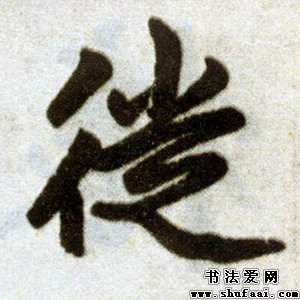 從
书法爱网
www.shufaai.com